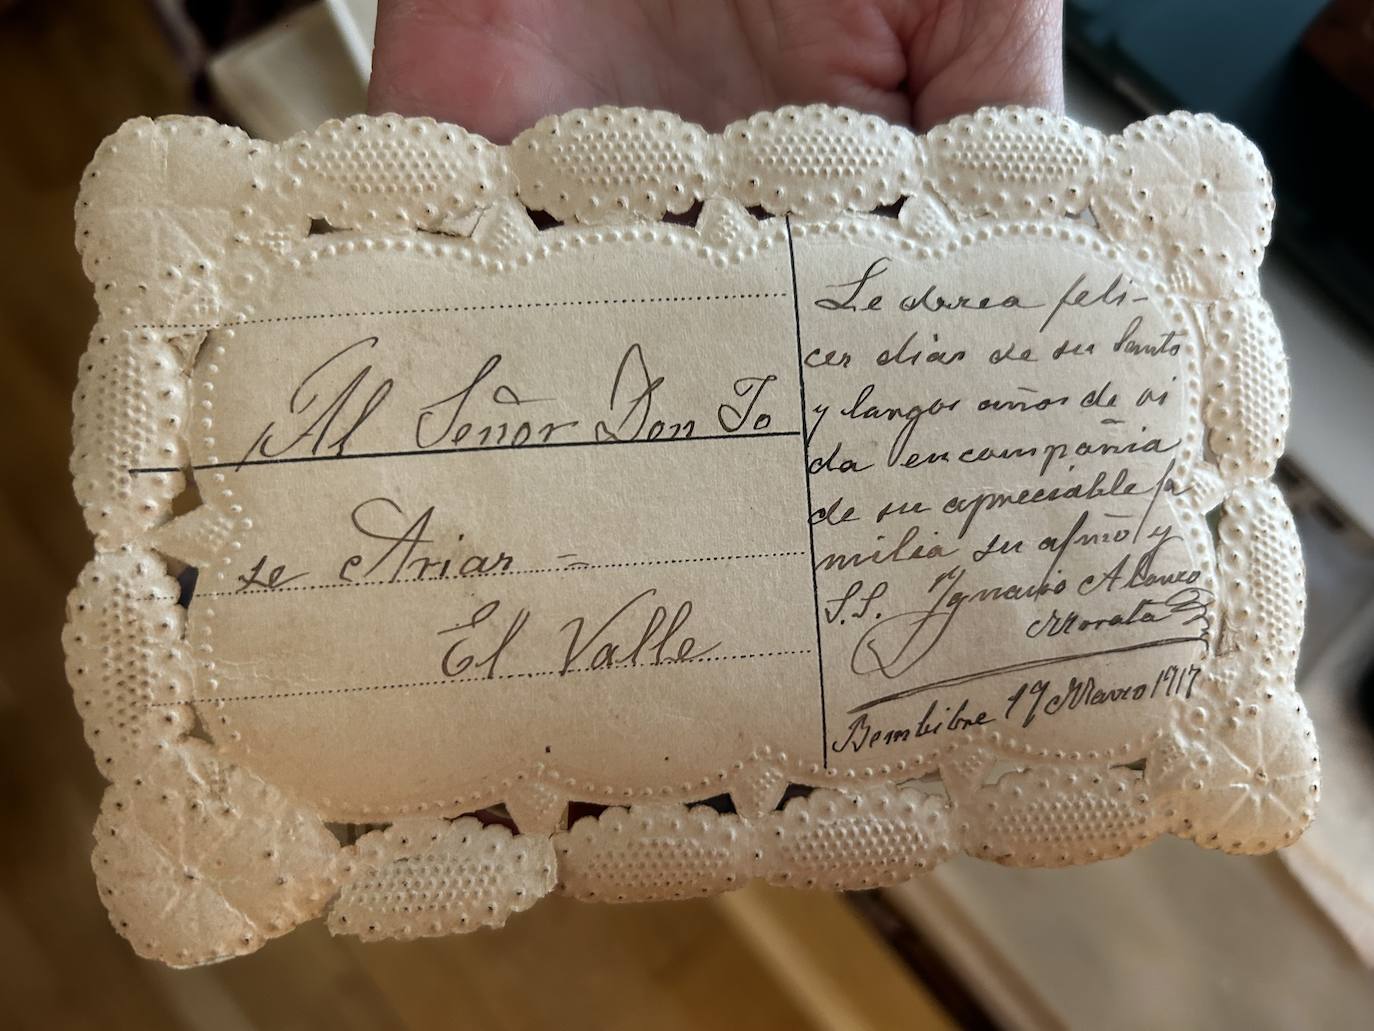 Al Señor Don Jo
se Arias =
El Valle
Le desea feli-
ces dias de su Santo
y largos años de vi
da en compañia
de su apreciable fa
milia su afmo y
S.S. Ignacio Alonso
Morata
Bembibre 19 Marzo 1917